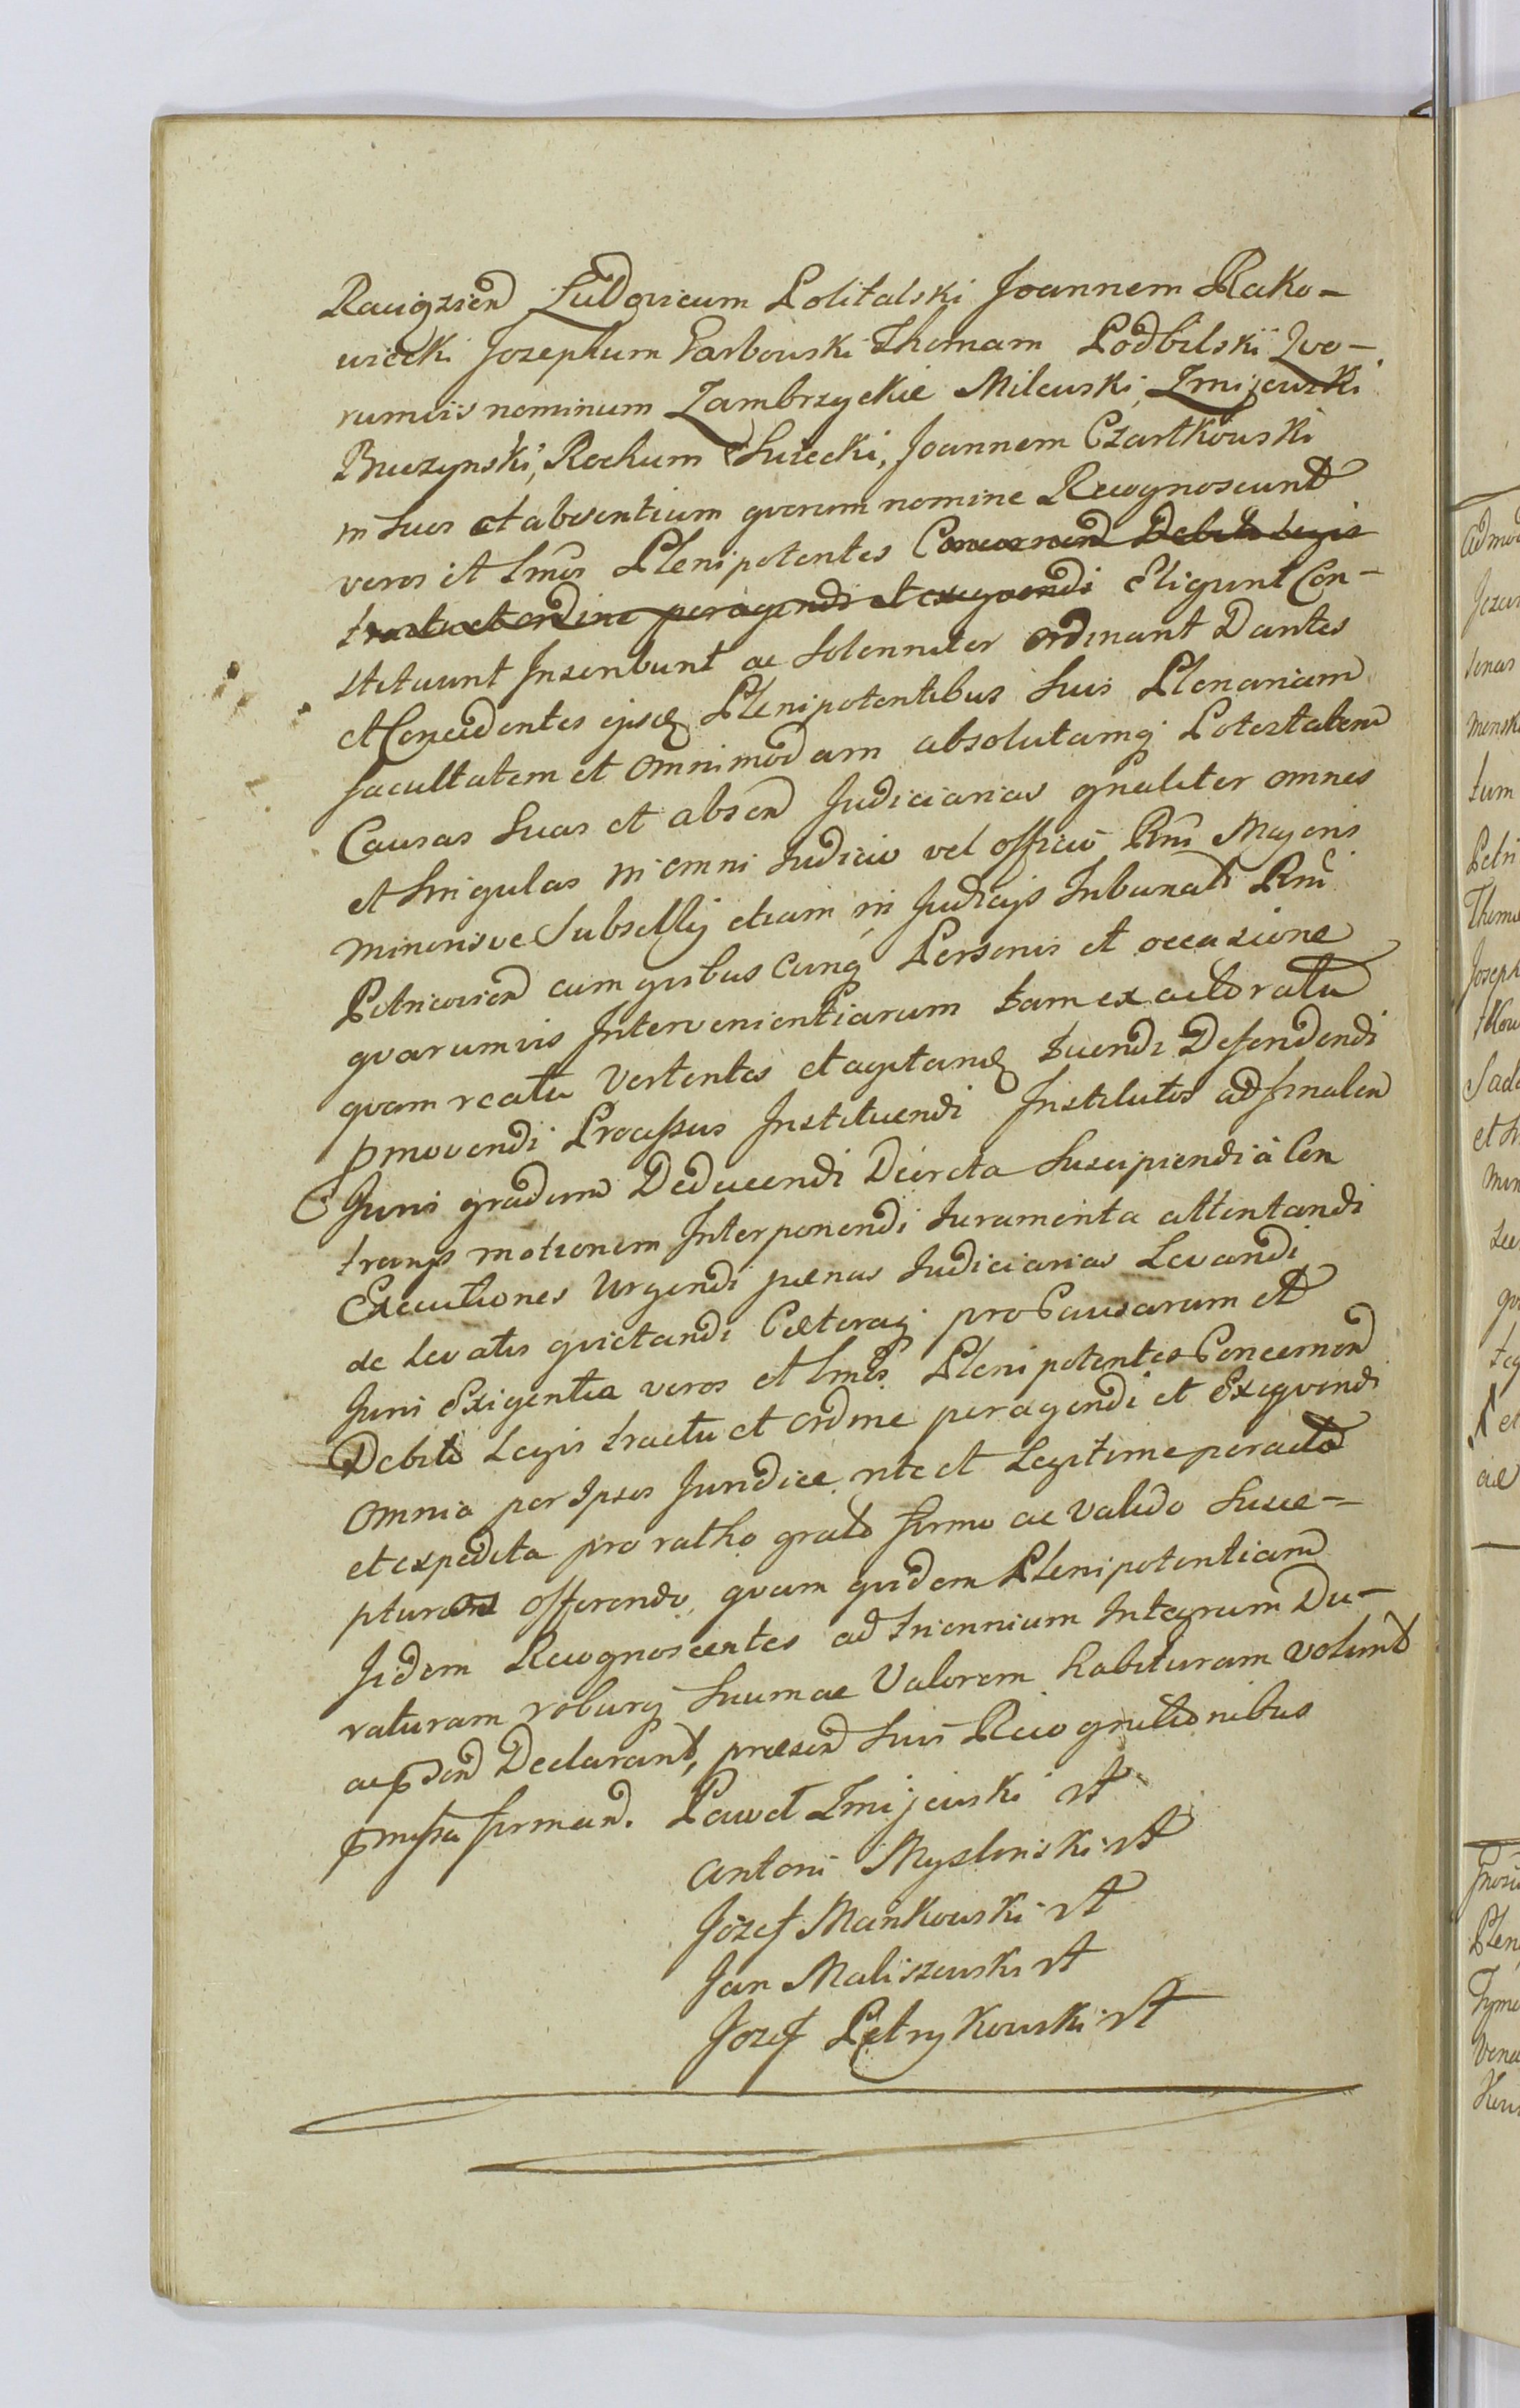 Raciązien Ludovicum Politalski Joannem Rako-
wiecki Josephum Garbowski Thomam Podbilski Quo-
rumvis nominum Zambrzyckie Milewski, Zmijewski
Buczynski, Rochum Suiecki, Joannem Czartkowski
in suos et absentium quorum nomine Recognoscunt
veros et lmõs Plenipotentes Concernend Debito Legis
tractu et ordine peragendi et exequendi Eligunt Con-
stituunt Inscribunt ac solenniter ordinant Dantes
et Concedentes ijsdẽ Plenipotentibus suis Plenariam
facultatem et omnimodam absolutamq Potestatem
Causas suas et absen Judiciarias gñaliter omnes
et singulas in omni Judicio vel officio Rñi Majoris
minorisve Subsellij etiam in Judicijs Tribunalis Rñi
Petricovien cum quibus cunq Personis et occasione
quarumvis Intervenientiarum tam ex actoratu
quam reatu vertentes et agitand tuendi Defendendi
pmovendi Processus Instituendi Institutos ad finalem
Juris gradum Deducendi Decreta Suscipiendi à Con
trarijs motionem Interponendi Juramenta attentandi
Executiones Urgendi pænas Judiciarias Levandi
de Levatis quietandi Cæteraq pro Causarum et
Juris Exigentia veros et lmõs Plenipotentes Concernen
Debito Legis tractu et ordine peragendi et Exequendi
omnia per Ipsos Juridice rite et Legitime peracta
et expedita pro ratho grato firmo ac valido susce-
pturos offerendo, quam quidem Plenipotentiam
Iidem Recognoscentes ad triennium Integrum Du-
raturam roburq suum ac Valorem habituram volunt
ac psen Declarant, præsen suis Recognitionibus
pmissa firmand. Paweł Zmijewski rt
Antoni Mysliński rt
Józef Mańkowski rt
Jan Maliszewski rt
Józef Petrykowski rt